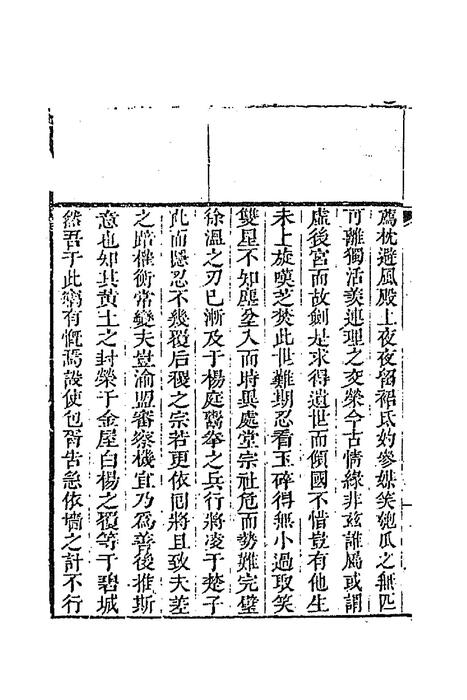 薦枕避風殿上夜夜留裾底妁麥媒笑匏瓜之無匹
可離獨活羨連理之交榮今古情緣非茲誰屬或謂
虛後宮而故劍是求得遺世而傾國不惜豈有他生
未上旋嘆芝焚此世難期忍看玉碎得無小過取笑
雙星不知塵坌入而時異處堂宗社危而勢難完璧
徐溫之刃已漸及于楊庭鬻拳之兵行將凌于楚子
此而隱忍不幾覆后稷之宗若更依囘將且致夫差
之踣權衡常變夫豈渝盟審察機宜乃為善後推斯
意也如其黃土之封榮于金屋白楊之覆等于碧城
然吾于此竊有慨焉設使包胥告急依墻之計不行